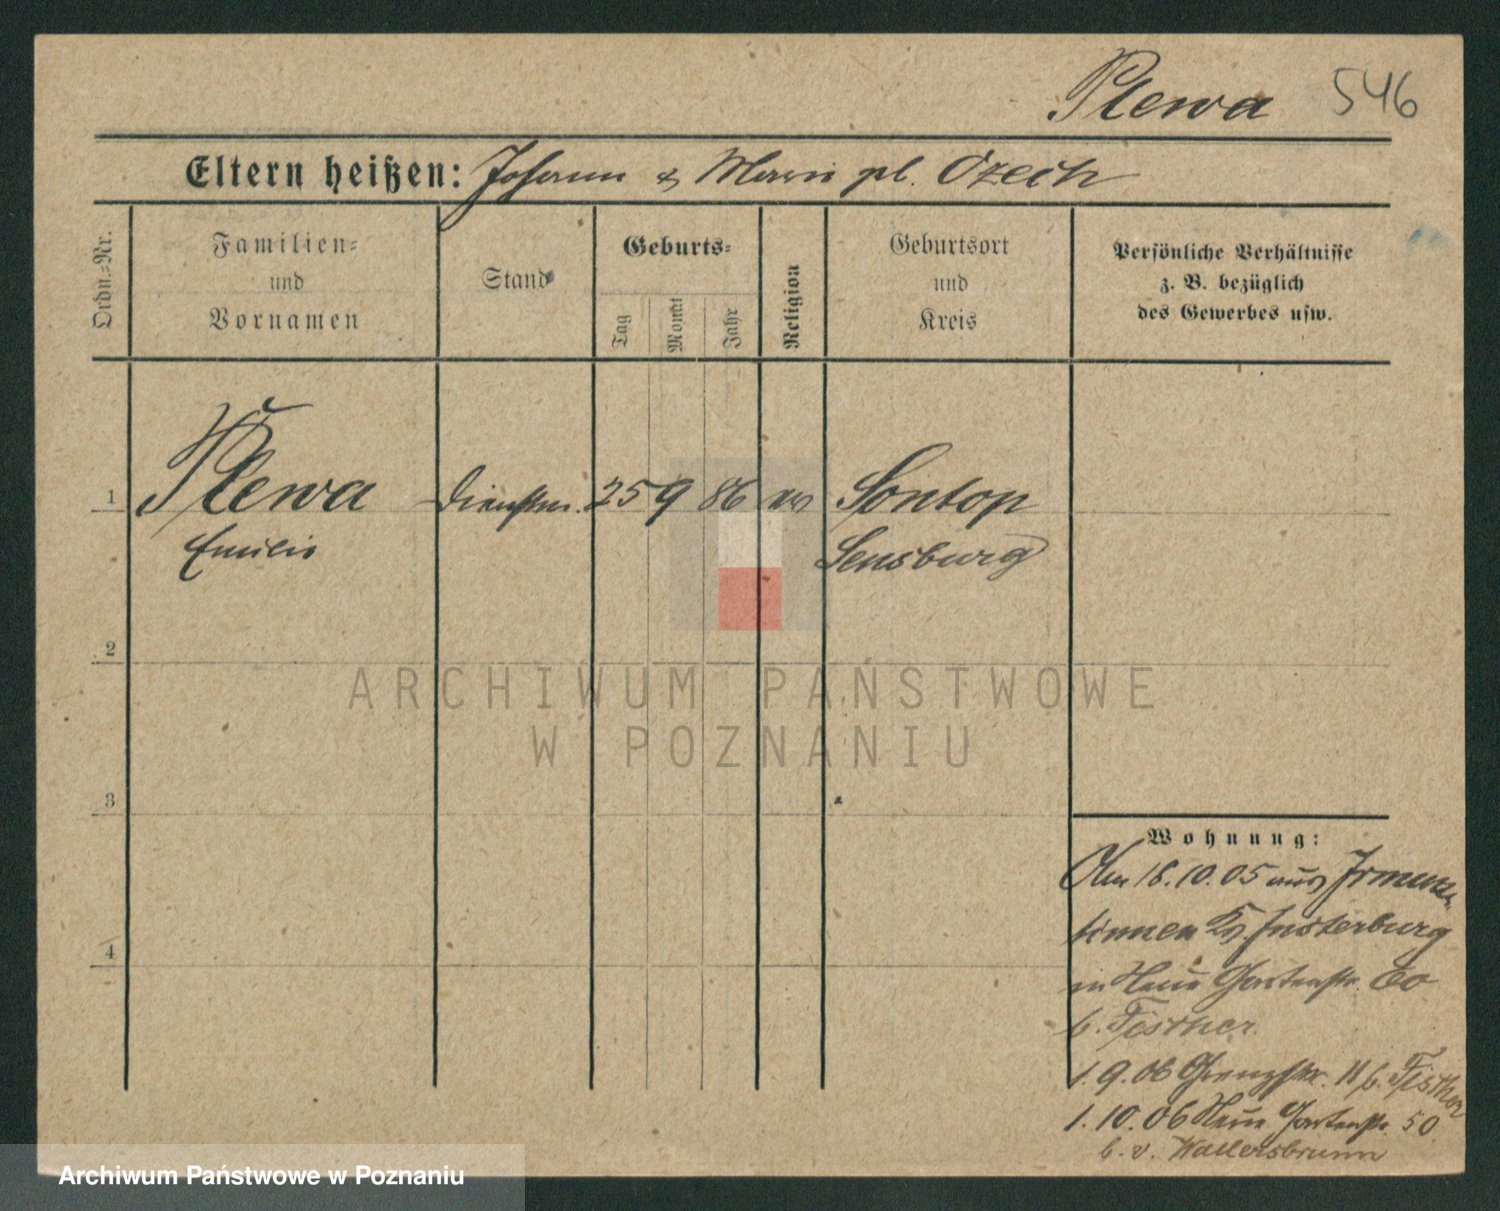 Plewa 546
Eltern heißen: Johann & Marie gb. Czech
Ordn.=Nr.
Familien=
und
Vornamen
Stand
Geburts=
Tag
Monat
Jahr
Religion
Geburtsort
und
Kreis
Persönliche Verhältnisse
z. B. bezüglich
des Gewerbes usw.
1 Plewa Dienstm. 25 9 86 ev Sontop
Emilie Sensburg
2
3
4
Wohnung:
Am 18.10.05 aus
Kr. Insterburg
in Neue Gartenstr. 60
b. Fischer
1.9.06 Grenzstr. 11 b. Fischer
1.10.06 Neue Gartenstr. 50
b. v. Wallersbrunn
ARCHIWUM PAŃSTWOWE
W POZNANIU
Archiwum Państwowe w Poznaniu